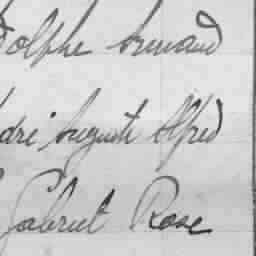 dolphe Armand
dré Auguste Alfred
Gabriel Rose